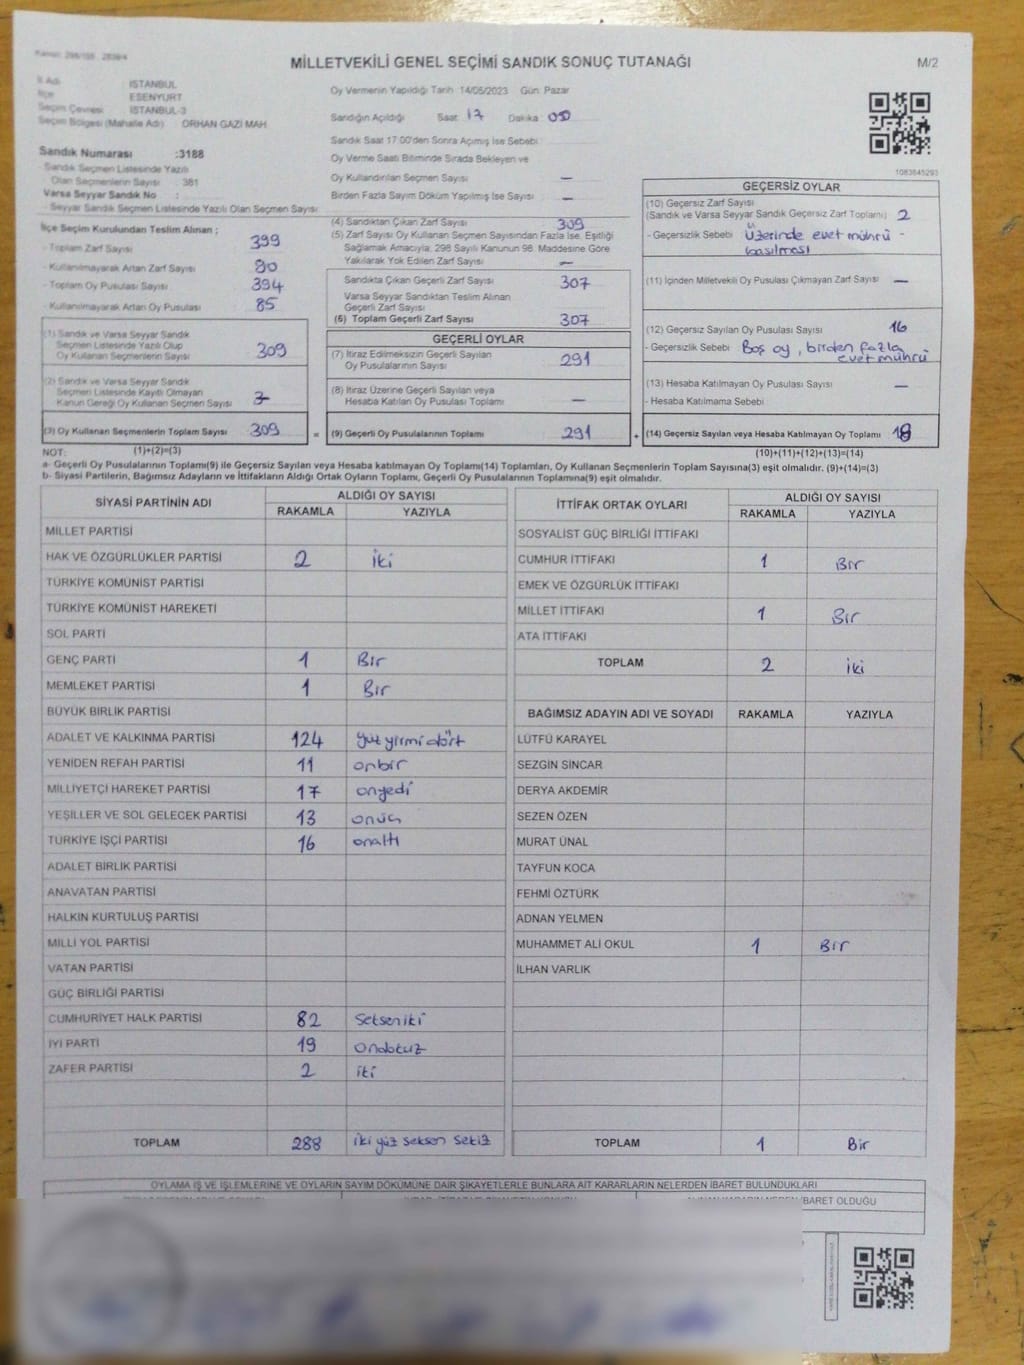 MİLLETVEKİLİ GENEL SEÇİMİ SANDIK SONUÇ TUTANAĞI
M/2
İl Adı İSTANBUL
İlçe ESENYURT
Seçim Çevresi İSTANBUL-3
Seçim Bölgesi (Mahalle Adı) ORHAN GAZİ MAH
Sandık Numarası :3188
Sandık Seçmen Listesinde Yazılı
Olan Seçmenlerin Sayısı : 381
Varsa Seyyar Sandık No :
Seyyar Sandık Seçmen Listesinde Yazılı Olan Seçmen Sayısı:
Oy Vermenin Yapıldığı Tarih 14/05/2023 Gün: Pazar
Sandığın Açıldığı Saat: 17 Dakika:
Sandık Saat 17.00'den Sonra Açılmış İse Sebebi:
Oy Verme Saati Bitiminde Sırada Bekleyen ve
Oy Kullandırılan Seçmen Sayısı : —
Birden Fazla Sayım Döküm Yapılmış İse Sayısı : —
1083645293
İlçe Seçim Kurulundan Teslim Alınan ;
- Toplam Zarf Sayısı 399
- Kullanılmayarak Artan Zarf Sayısı 90
- Toplam Oy Pusulası Sayısı 394
- Kullanılmayarak Artan Oy Pusulası 85
(1) Sandık ve Varsa Seyyar Sandık
Seçmen Listesinde Yazılı Olup
Oy Kullanan Seçmenlerin Sayısı 309
(2) Sandık ve Varsa Seyyar Sandık
Seçmen Listesinde Kayıtlı Olmayan
Kanun Gereği Oy Kullanan Seçmen Sayısı
(3) Oy Kullanan Seçmenlerin Toplam Sayısı 309 =
(1)+(2)=(3)
(4) Sandıktan Çıkan Zarf Sayısı 309
(5) Zarf Sayısı Oy Kullanan Seçmen Sayısından Fazla İse, Eşitliği
Sağlamak Amacıyla, 298 Sayılı Kanunun 98. Maddesine Göre
Yakılarak Yok Edilen Zarf Sayısı : —
Sandıkta Çıkan Geçerli Zarf Sayısı 307
Varsa Seyyar Sandıktan Teslim Alınan
Geçerli Zarf Sayısı
(6) Toplam Geçerli Zarf Sayısı 307
GEÇERLİ OYLAR
(7) İtiraz Edilmeksizin Geçerli Sayılan
Oy Pusulalarının Sayısı 291
(8) İtiraz Üzerine Geçerli Sayılan veya
Hesaba Katılan Oy Pusulası Toplamı —
(9) Geçerli Oy Pusulalarının Toplamı 291 +
GEÇERSİZ OYLAR
(10) Geçersiz Zarf Sayısı
(Sandık ve Varsa Seyyar Sandık Geçersiz Zarf Toplamı) 2
- Geçersizlik Sebebi Üzerinde evet mührü -
basılması
(11) İçinden Milletvekili Oy Pusulası Çıkmayan Zarf Sayısı —
(12) Geçersiz Sayılan Oy Pusulası Sayısı 16
- Geçersizlik Sebebi Boş oy, birden fazla
evet mührü
(13) Hesaba Katılmayan Oy Pusulası Sayısı —
- Hesaba Katılmama Sebebi
(14) Geçersiz Sayılan veya Hesaba Katılmayan Oy Toplamı 18
(10)+(11)+(12)+(13)=(14)
NOT:
a- Geçerli Oy Pusulalarının Toplamı(9) ile Geçersiz Sayılan veya Hesaba katılmayan Oy Toplamı(14) Toplamları, Oy Kullanan Seçmenlerin Toplam Sayısına(3) eşit olmalıdır. (9)+(14)=(3)
b- Siyasi Partilerin, Bağımsız Adayların ve İttifakların Aldığı Ortak Oyların Toplamı, Geçerli Oy Pusulalarının Toplamına(9) eşit olmalıdır.
SİYASİ PARTİNİN ADI ALDIĞI OY SAYISI
RAKAMLA YAZIYLA
MİLLET PARTİSİ
HAK VE ÖZGÜRLÜKLER PARTİSİ 2 iki
TÜRKİYE KOMÜNİST PARTİSİ
TÜRKİYE KOMÜNİST HAREKETİ
SOL PARTİ
GENÇ PARTİ 1 Bir
MEMLEKET PARTİSİ 1 Bir
BÜYÜK BİRLİK PARTİSİ
ADALET VE KALKINMA PARTİSİ 124 yüz yirmi dört
YENİDEN REFAH PARTİSİ 11 onbir
MİLLİYETÇİ HAREKET PARTİSİ 17 onyedi
YEŞİLLER VE SOL GELECEK PARTİSİ 13 onüç
TÜRKİYE İŞÇİ PARTİSİ 16 onaltı
ADALET BİRLİK PARTİSİ
ANAVATAN PARTİSİ
HALKIN KURTULUŞ PARTİSİ
MİLLİ YOL PARTİSİ
VATAN PARTİSİ
GÜÇ BİRLİĞİ PARTİSİ
CUMHURİYET HALK PARTİSİ 82 Seksen iki
İYİ PARTİ 19 Ondokuz
ZAFER PARTİSİ 2 iki
TOPLAM 288 iki yüz seksen sekiz
İTTİFAK ORTAK OYLARI ALDIĞI OY SAYISI
RAKAMLA YAZIYLA
SOSYALİST GÜÇ BİRLİĞİ İTTİFAKI
CUMHUR İTTİFAKI 1 Bir
EMEK VE ÖZGÜRLÜK İTTİFAKI
MİLLET İTTİFAKI 1 Bir
ATA İTTİFAKI
TOPLAM 2 iki
BAĞIMSIZ ADAYIN ADI VE SOYADI RAKAMLA YAZIYLA
LÜTFÜ KARAYEL
SEZGİN SİNCAR
DERYA AKDEMİR
SEZEN ÖZEN
MURAT ÜNAL
TAYFUN KOCA
FEHMİ ÖZTÜRK
ADNAN YELMEN
MUHAMMET ALİ OKUL 1 Bir
İLHAN VARLIK
TOPLAM 1 Bir
OYLAMA İŞ VE İŞLEMLERİNE VE OYLARIN SAYIM DÖKÜMÜNE DAİR ŞİKAYETLERLE BUNLARA AİT KARARLARIN NELERDEN İBARET BULUNDUKLARI
İBARET OLDUĞU